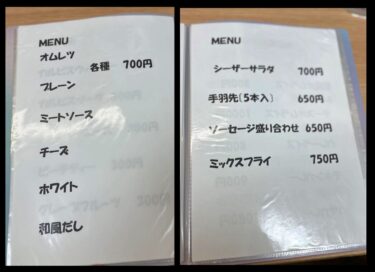 MENU
オムレツ
各種 700円
プレーン
ミートソース
チーズ
ホワイト
和風だし
MENU
シーザーサラダ 700円
手羽先(5本入) 650円
ソーセージ盛り合わせ 650円
ミックスフライ 750円